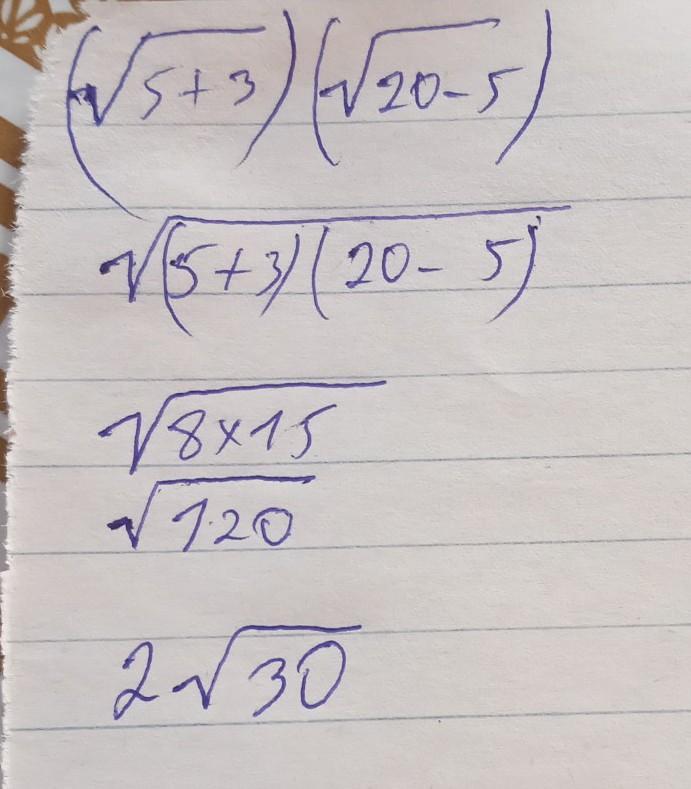 (√5+3)(√20-5)
√(5+3)(20-5)
√8×15
√120
2√30